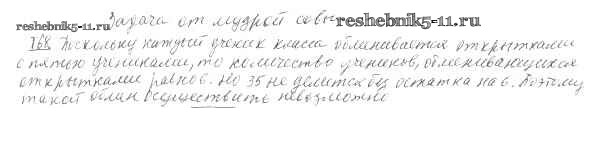 reshebnik5-11.ru Задача от мудрой совы reshebnik5-11.ru
768 Поскольку каждый ученик класса обменивается открытками
с пятью учениками, то количество учеников, обменивающихся
открытками равно 6. Но 35 не делится без остатка на 6. Поэтому
такой обмен осуществить невозможно